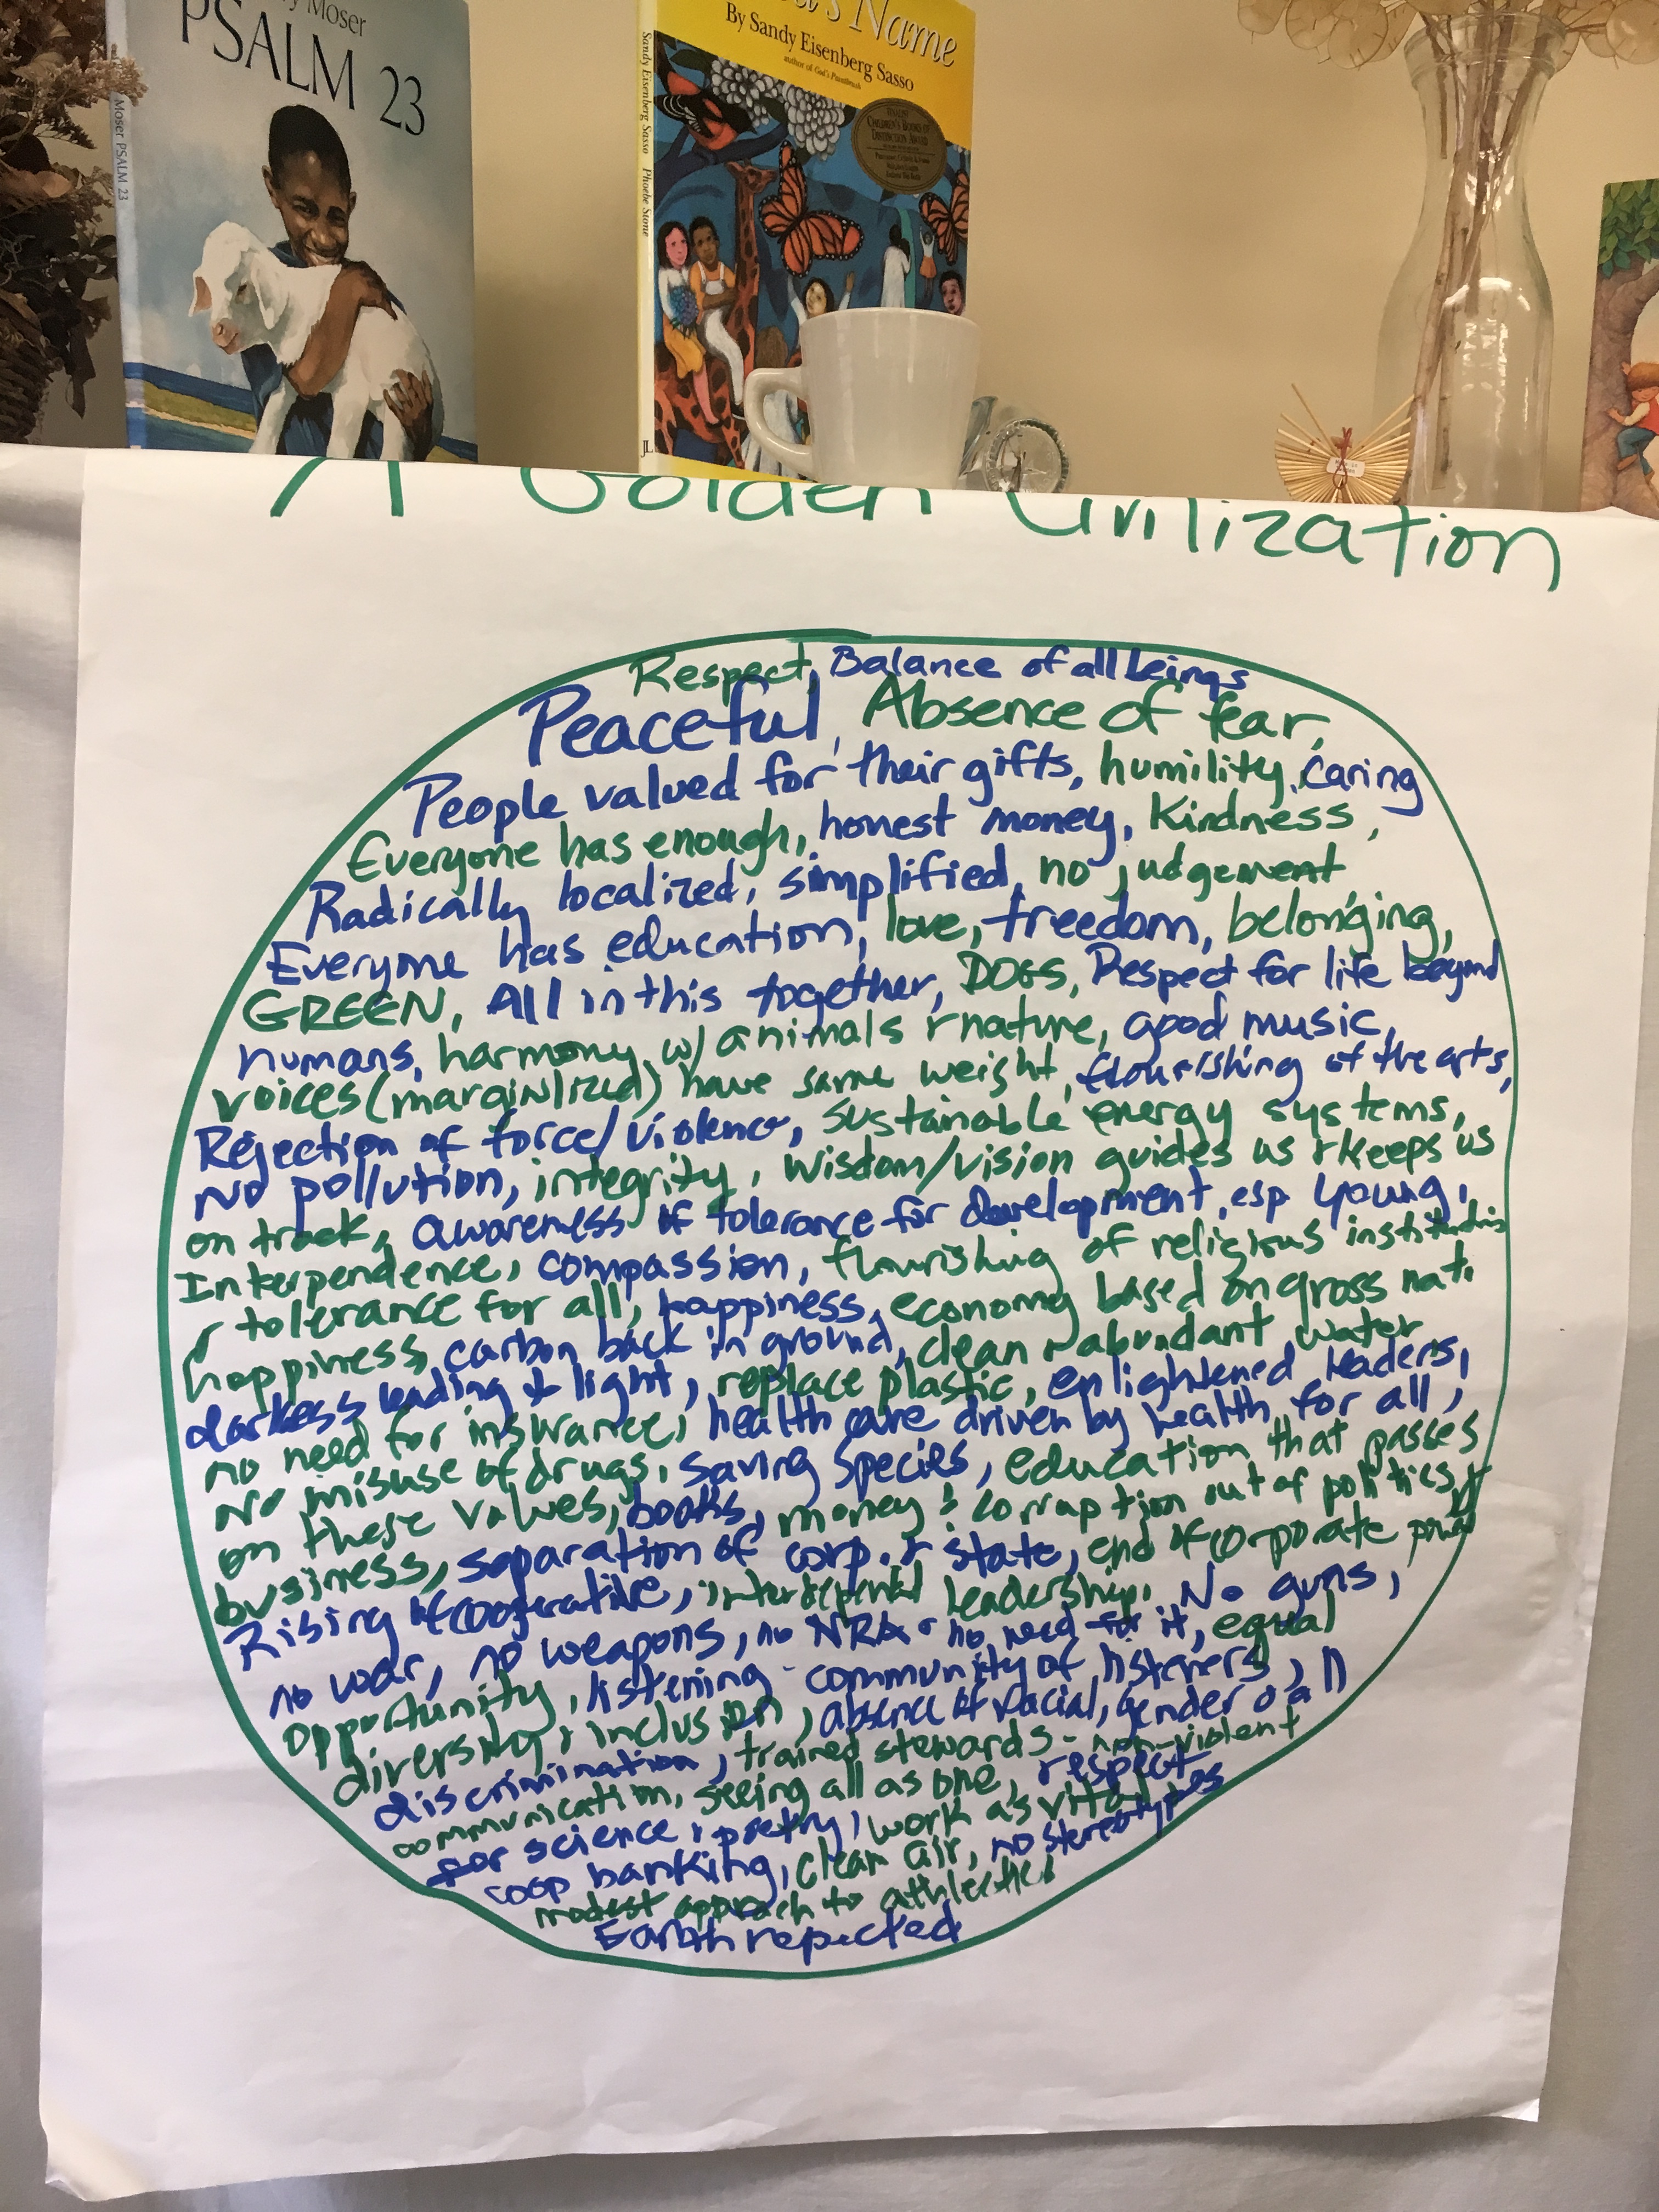 Moser
PSALM 23
Moser PSALM 23
's Name
By Sandy Eisenberg Sasso
author of God's Paintbrush
Sandy Eisenberg Sasso Phoebe Stone
JL
FINALIST
CHILDREN'S BOOKS OF
DISTINCTION AWARD
A Golden Civilization
Respect, Balance of all beings
Peaceful, Absence of fear,
People valued for their gifts, humility, caring
Everyone has enough, honest money, Kindness,
Radically localized, simplified, no judgement
Everyone has education, love, freedom, belonging,
GREEN, All in this together, DOGS, Respect for life beyond
humans, harmony w/ animals & nature, good music,
voices (marginlized) have same weight, flourishing of the arts,
Rejection of force/violence, sustainable energy systems,
No pollution, integrity, wisdom/vision guides us & keeps us
on track, awareness of tolerance for development, esp young,
Interpendence, compassion, flourishing of religious institutions
& tolerance for all, happiness, economy based on gross nat.
happiness, carbon back in ground, clean & abundant water
darkess leading to light, replace plastic, enlightened leaders,
no need for insurance, health care driven by health for all,
No misuse of drugs, saving species, education that passes
on these values, books, money & corruption out of politics &
business, separation of corp. & state, end of corporate
Rising of cooperative, leadership, No guns,
no war, no weapons, no NRA - no need for it, equal
opportunity, listening - community of listeners,
diversity & inclusion, absence of racial, gender & all
discrimination, trained stewards - non-violent
communication, seeing all as one, respect
for science, poetry, work as vital
coop banking, clean air, no stereotypes
modest approach to athletics
Earth repected